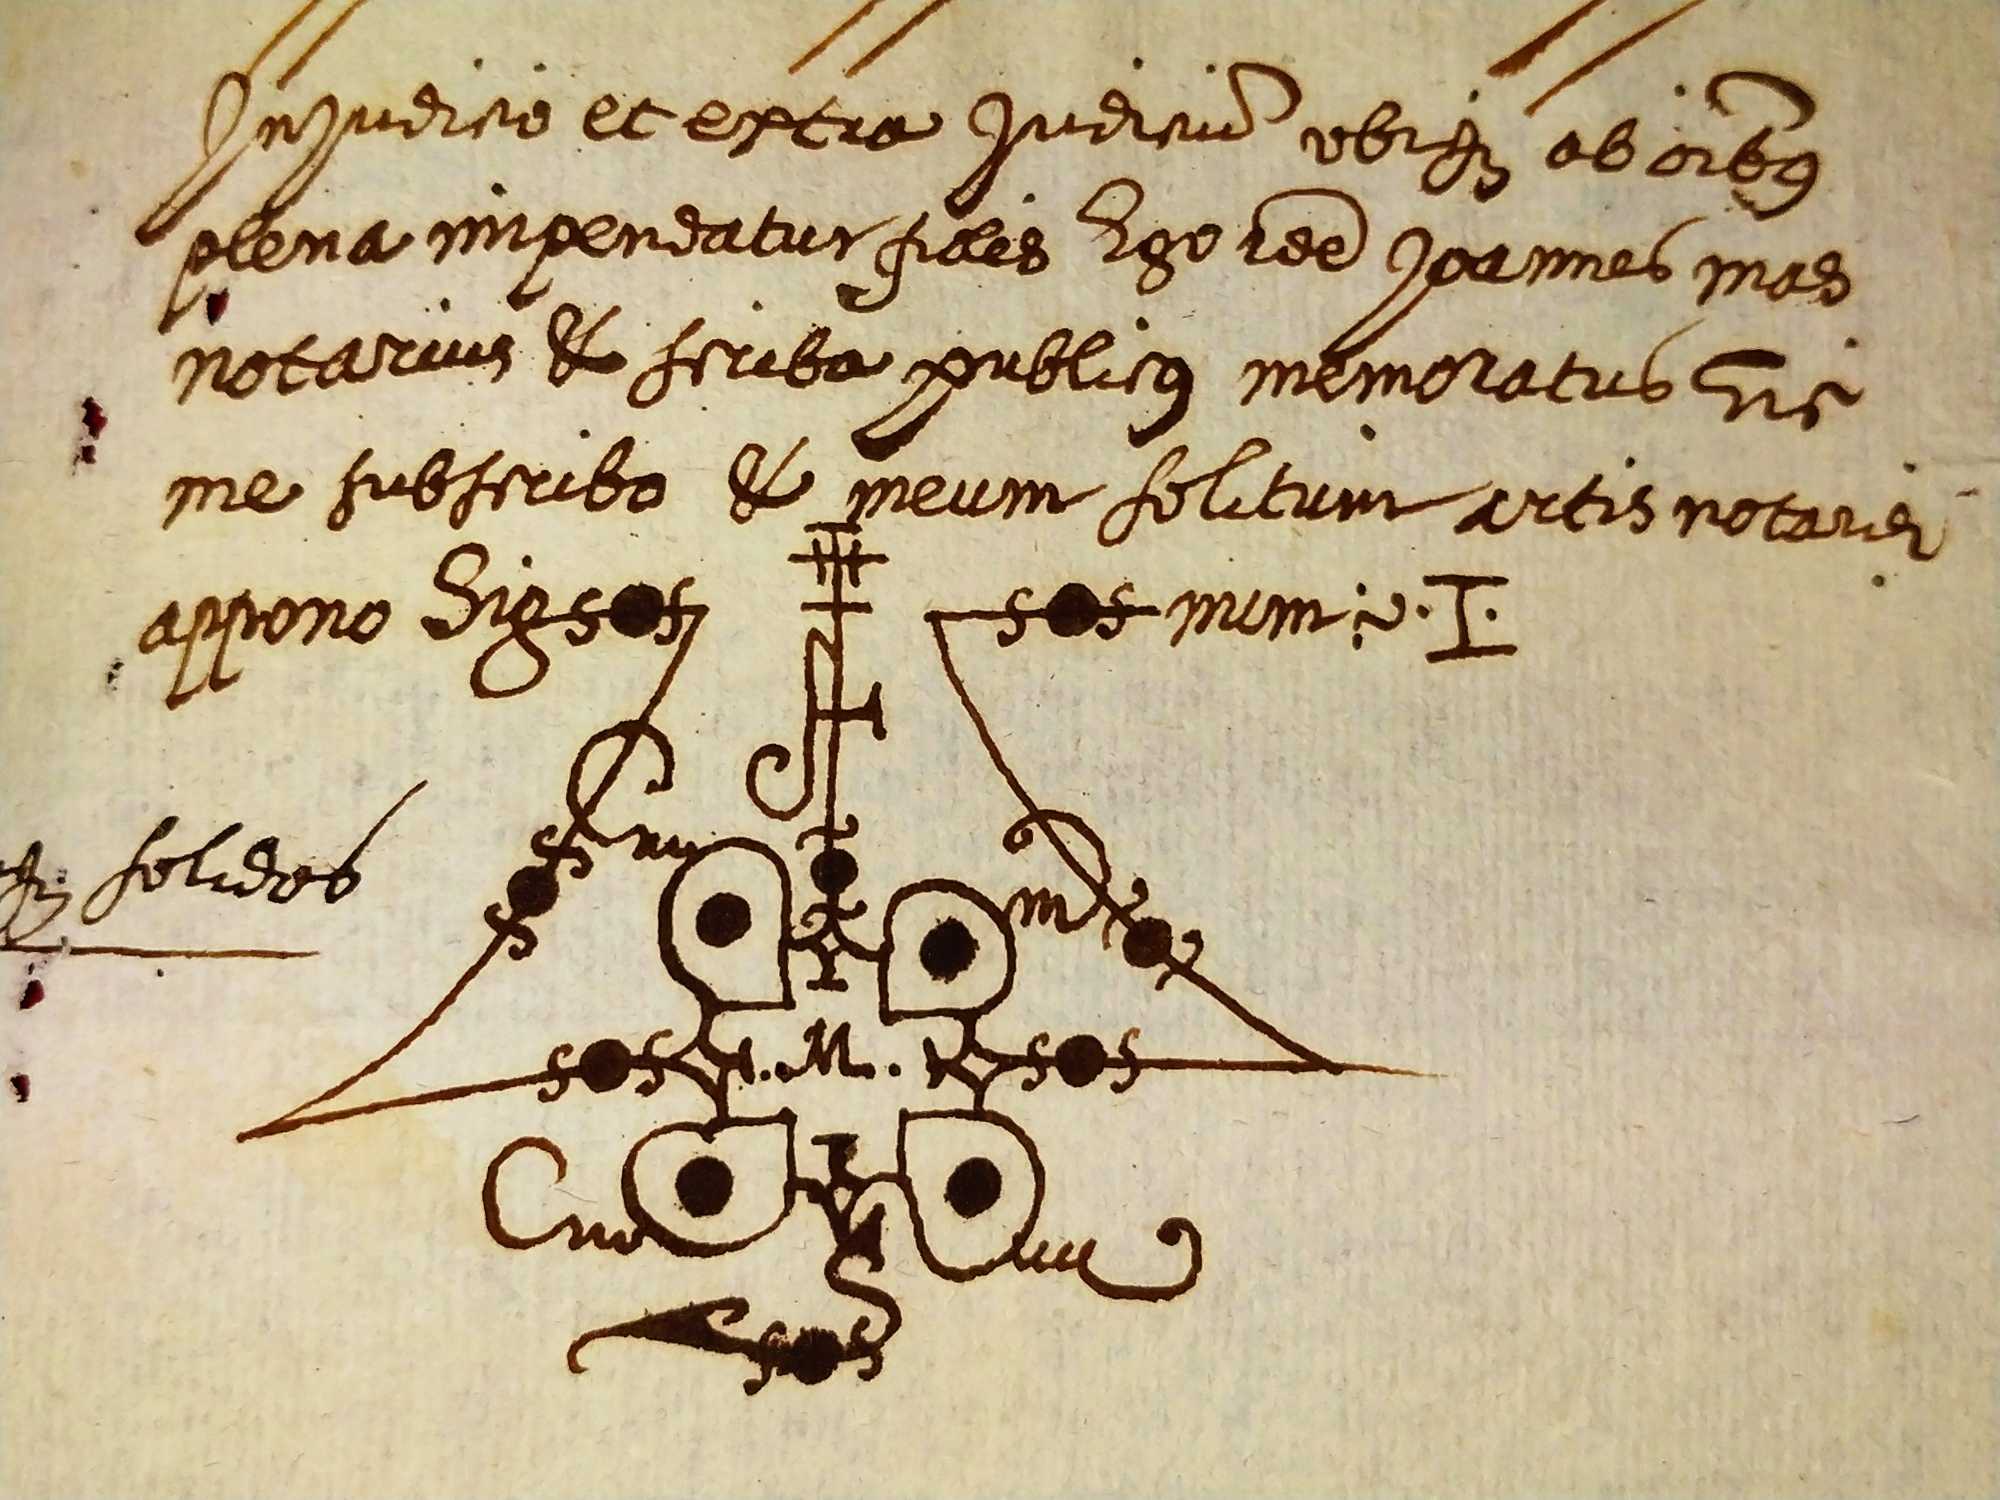 In Judicio et extra Judiciũ ubiqȝ ab oĩbꝰ
plena impendatur fides Ego idẽ Joannes mas
notarius & scriba publicꝰ memoratus hic
me subscribo & meum solitum artis notariȩ
appono Sig num
solidos
I. M.